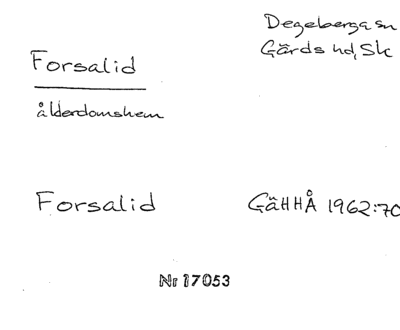 Degeberga sn
Gärds hd, Sk
Forsalid
ålderdomshem
Forsalid
GäHHÅ 1962:70
Nr 17053